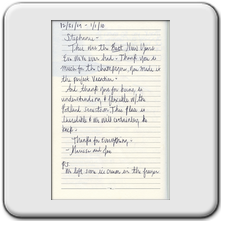 12/31/09 - 1/1/10
Stephanie -
This was the Best New Years
Eve We've ever had. Thank you so
much for the Champagne, you made it
the perfect Vacation.
And thank you for being so
understanding & flexible w/ the
This place is
incredible & we will certainly be
back.
Thanks for everything,
P.S.
We left some ice cream in the freezer